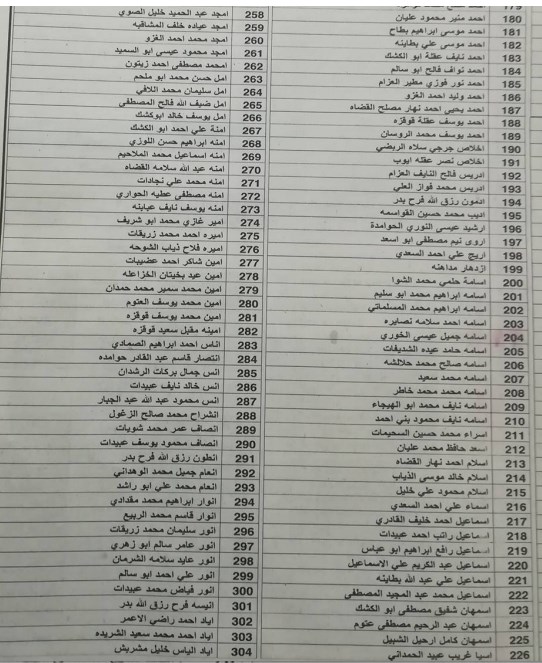 179
180 احمد منير محمود عليان
181 احمد موسى ابراهيم بطاح
182 احمد موسى علي بطاينه
183 احمد نايف عقلة ابو الكشك
184 احمد نواف فالح ابو سالم
185 احمد نور فوزي مطير العزام
186 احمد وليد احمد الغزو
187 احمد يحيى احمد نهار مصلح القضاه
188 احمد يوسف عقلة قوقزه
189 احمد يوسف محمد الروسان
190 اخلاص جرجي سلامه الربضي
191 اخلاص نصر عقله ايوب
192 ادريس فالح النايف العزام
193 ادريس محمد فواز العلي
194 ادمون رزق الله فرح بدر
195 اديب محمد حسين القواسمه
196 ارشيد عيسى النوري الحوامدة
197 اروى نيم مصطفى ابو اسعد
198 اريج علي احمد السعدي
199 ازدهار مداهنه
200 اسامة حلمي محمد الشوا
201 اسامه ابراهيم محمد ابو سليم
202 اسامه ابراهيم محمد المسلماني
203 اسامه احمد سلامه نصايره
204 اسامه جميل عيسى الخوري
205 اسامه حامد عبده الشديفات
206 اسامه صالح محمد حلالشه
207 اسامه محمد سعيد
208 اسامه محمد محمد خاطر
209 اسامه نايف محمد ابو الهيجاء
210 اسامه نايف محمود بني احمد
211 اسراء محمد حسين السحيمات
212 اسعد حافظ محمد عليان
213 اسلام احمد نهار القضاه
214 اسلام خالد موسى الذياب
215 اسلام محمود علي خليل
216 اسماء علي احمد السعدي
217 اسماعيل احمد خليف القادري
218 اسماعيل راتب احمد عبيدات
219 اسماعيل رافع ابراهيم ابو عباس
220 اسماعيل عبد الكريم علي الاسماعيل
221 اسماعيل علي عبد الله بطاينه
222 اسماعيل محمد عبد المجيد المصطفى
223 اسمهان شفيق مصطفى ابو الكشك
224 اسمهان عبد الرحيم مصطفى عتوم
225 اسمهان كامل ارحيل الشبيل
226 اسيا غريب عبيد الحمداني
258 امجد عبد الحميد خليل الصوي
259 امجد عياده خلف المشاقبه
260 امجد محمد احمد الغزو
261 امجد محمود عيسى ابو السميد
262 امحمد مصطفى احمد زيتون
263 امل حسن محمد ابو ملحم
264 امل سليمان محمد اللافي
265 امل ضيف الله فالح المصطفى
266 امل يوسف خالد ابوكشك
267 امنة علي احمد ابو الكشك
268 امنه ابراهيم حسن اللوزي
269 امنه اسماعيل محمد الملاحيم
270 امنه عبد الله سلامه القضاه
271 امنه محمد علي نجادات
272 امنه مصطفى عطيه الحواري
273 امنه يوسف نايف عبابنه
274 امير غازي محمد ابو شريف
275 اميره احمد محمد زريقات
276 اميره فلاح ذياب الشوحه
277 امين شاكر احمد عضيبات
278 امين عبد بخيتان الخزاعله
279 امين محمد سمير محمد حمدان
280 امين محمد يوسف العتوم
281 امين محمد يوسف قوقزه
282 امينه مقبل سعيد قوقزه
283 اناس احمد ابراهيم الصمادي
284 انتصار قاسم عبد القادر حوامده
285 انس جمال بركات الرشدان
286 انس خالد نايف عبيدات
287 انس محمود عبد الله عبد الجبار
288 انشراح محمد صالح الزغول
289 انصاف عمر محمد شويات
290 انصاف محمود يوسف عبيدات
291 انطون رزق الله فرح بدر
292 انعام جميل محمد الوهداني
293 انعام محمد علي ابو راشد
294 انوار ابراهيم محمد مقدادي
295 انوار قاسم محمد الربيع
296 انور سليمان محمد زريقات
297 انور عامر سالم ابو زهري
298 انور عايد سلامه الشرمان
299 انور علي احمد ابو سالم
300 انور فياض محمد عبيدات
301 انيسه فرح رزق الله بدر
302 اياد احمد راضي الاعمر
303 اياد احمد محمد سعيد الشريده
304 اياد الياس خليل مشربش